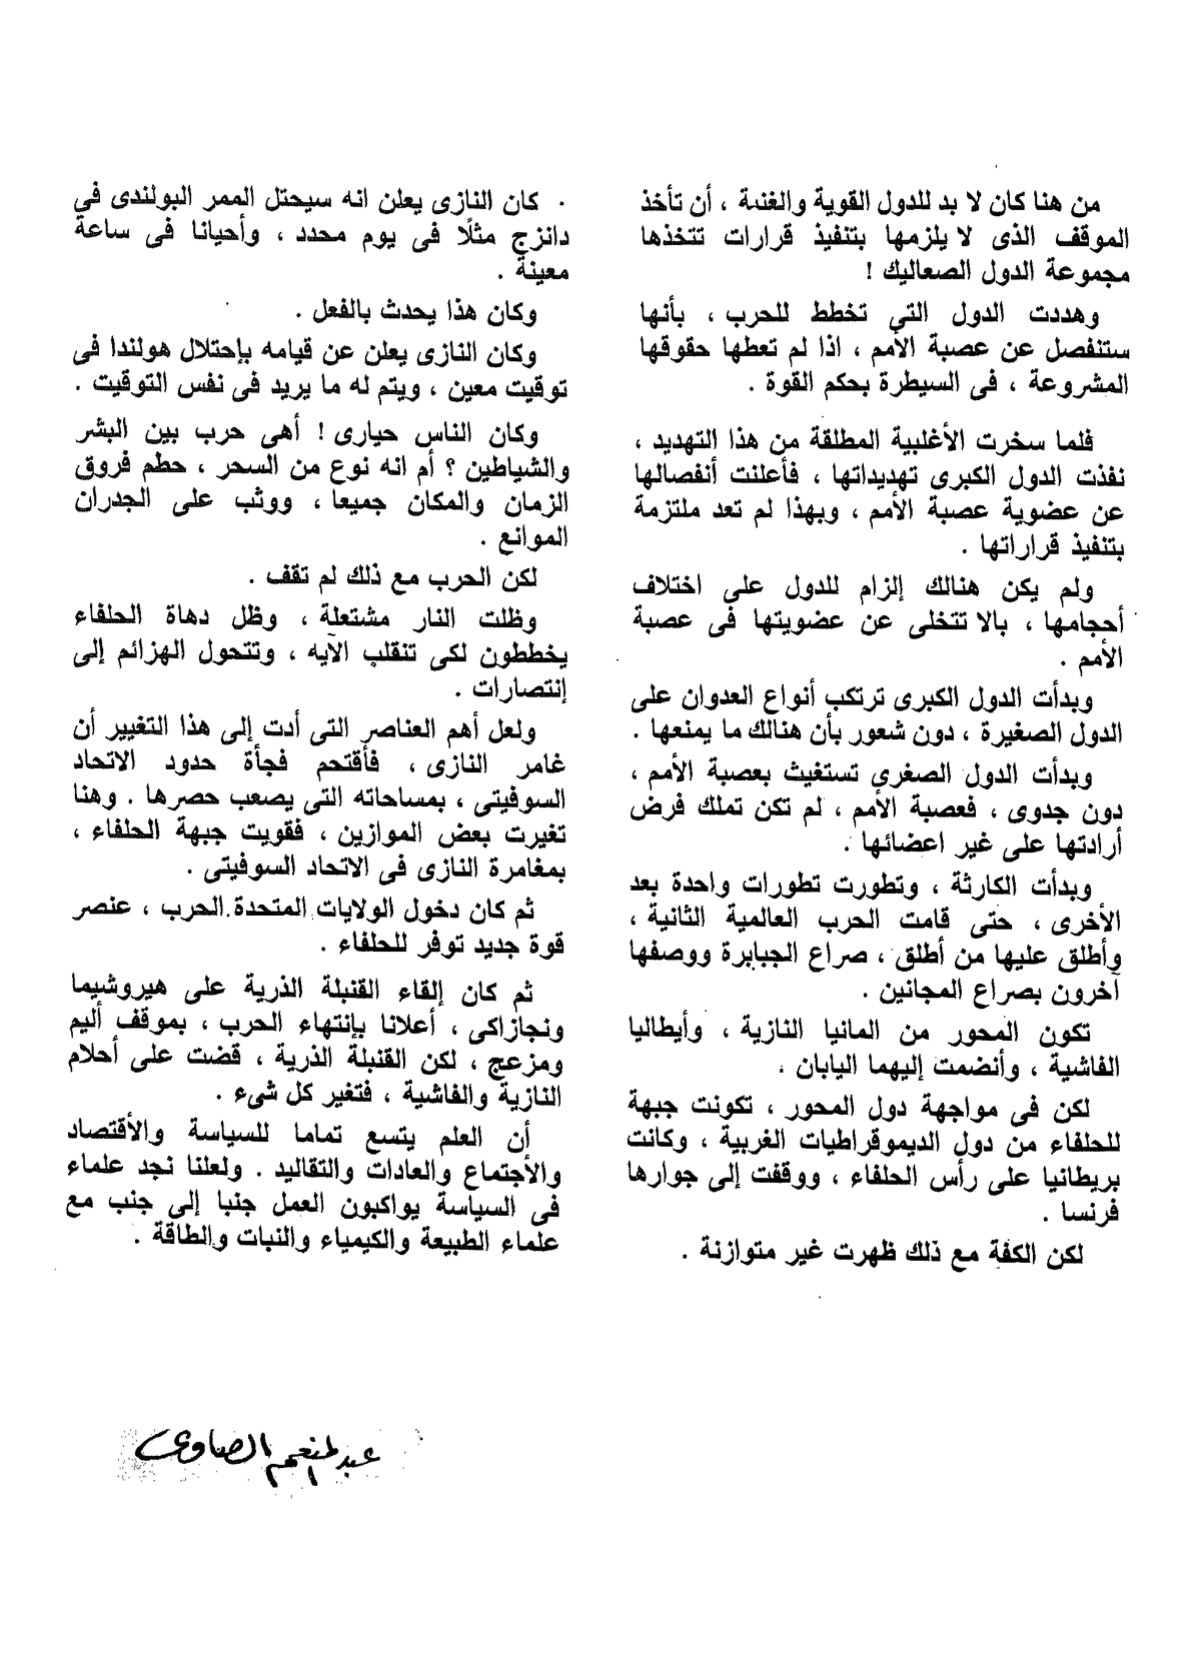 من هنا كان لا بد للدول القوية والغنية ، أن تأخذ
الموقف الذى لا يلزمها بتنفيذ قرارات تتخذها
مجموعة الدول الصعاليك !
وهددت الدول التي تخطط للحرب ، بأنها
ستنفصل عن عصبة الأمم ، اذا لم تعطها حقوقها
المشروعة ، فى السيطرة بحكم القوة .
فلما سخرت الأغلبية المطلقة من هذا التهديد ،
نفذت الدول الكبرى تهديداتها ، فأعلنت أنفصالها
عن عضوية عصبة الأمم ، وبهذا لم تعد ملتزمة
بتنفيذ قراراتها .
ولم يكن هنالك إلزام للدول على اختلاف
أحجامها ، بالا تتخلى عن عضويتها فى عصبة
الأمم .
وبدأت الدول الكبرى ترتكب أنواع العدوان على
الدول الصغيرة ، دون شعور بأن هنالك ما يمنعها .
وبدأت الدول الصغرى تستغيث بعصبة الأمم ،
دون جدوى ، فعصبة الأمم ، لم تكن تملك فرض
أرادتها على غير اعضائها .
وبدأت الكارثة ، وتطورت تطورات واحدة بعد
الأخرى ، حتى قامت الحرب العالمية الثانية ،
وأطلق عليها من أطلق ، صراع الجبابرة ووصفها
آخرون بصراع المجانين .
تكون المحور من المانيا النازية ، وأيطاليا
الفاشية ، وأنضمت إليهما اليابان .
لكن فى مواجهة دول المحور ، تكونت جبهة
للحلفاء من دول الديموقراطيات الغربية ، وكانت
بريطانيا على رأس الحلفاء ، ووقفت إلى جوارها
فرنسا .
لكن الكفة مع ذلك ظهرت غير متوازنة .
كان النازى يعلن انه سيحتل الممر البولندى في
دانزج مثلًا فى يوم محدد ، وأحيانا فى ساعة
معينة .
وكان هذا يحدث بالفعل .
وكان النازى يعلن عن قيامه بإحتلال هولندا فى
توقيت معين ، ويتم له ما يريد فى نفس التوقيت .
وكان الناس حيارى ! أهى حرب بين البشر
والشياطين ؟ أم انه نوع من السحر ، حطم فروق
الزمان والمكان جميعا ، ووثب على الجدران
الموانع .
لكن الحرب مع ذلك لم تقف .
وظلت النار مشتعلة ، وظل دهاة الحلفاء
يخططون لكى تنقلب الآيه ، وتتحول الهزائم إلى
إنتصارات .
ولعل أهم العناصر التى أدت إلى هذا التغيير أن
غامر النازى ، فأقتحم فجأة حدود الاتحاد
السوفيتى ، بمساحاته التى يصعب حصرها . وهنا
تغيرت بعض الموازين ، فقويت جبهة الحلفاء ،
بمغامرة النازى فى الاتحاد السوفيتى .
ثم كان دخول الولايات المتحدة الحرب ، عنصر
قوة جديد توفر للحلفاء .
ثم كان إلقاء القنبلة الذرية على هيروشيما
ونجازاكى ، أعلانا بإنتهاء الحرب ، بموقف أليم
ومزعج ، لكن القنبلة الذرية ، قضت على أحلام
النازية والفاشية ، فتغير كل شىء .
أن العلم يتسع تماما للسياسة والأقتصاد
والأجتماع والعادات والتقاليد . ولعلنا نجد علماء
فى السياسة يواكبون العمل جنبا إلى جنب مع
علماء الطبيعة والكيمياء والنبات والطاقة .
عبد المنعم الصاوى